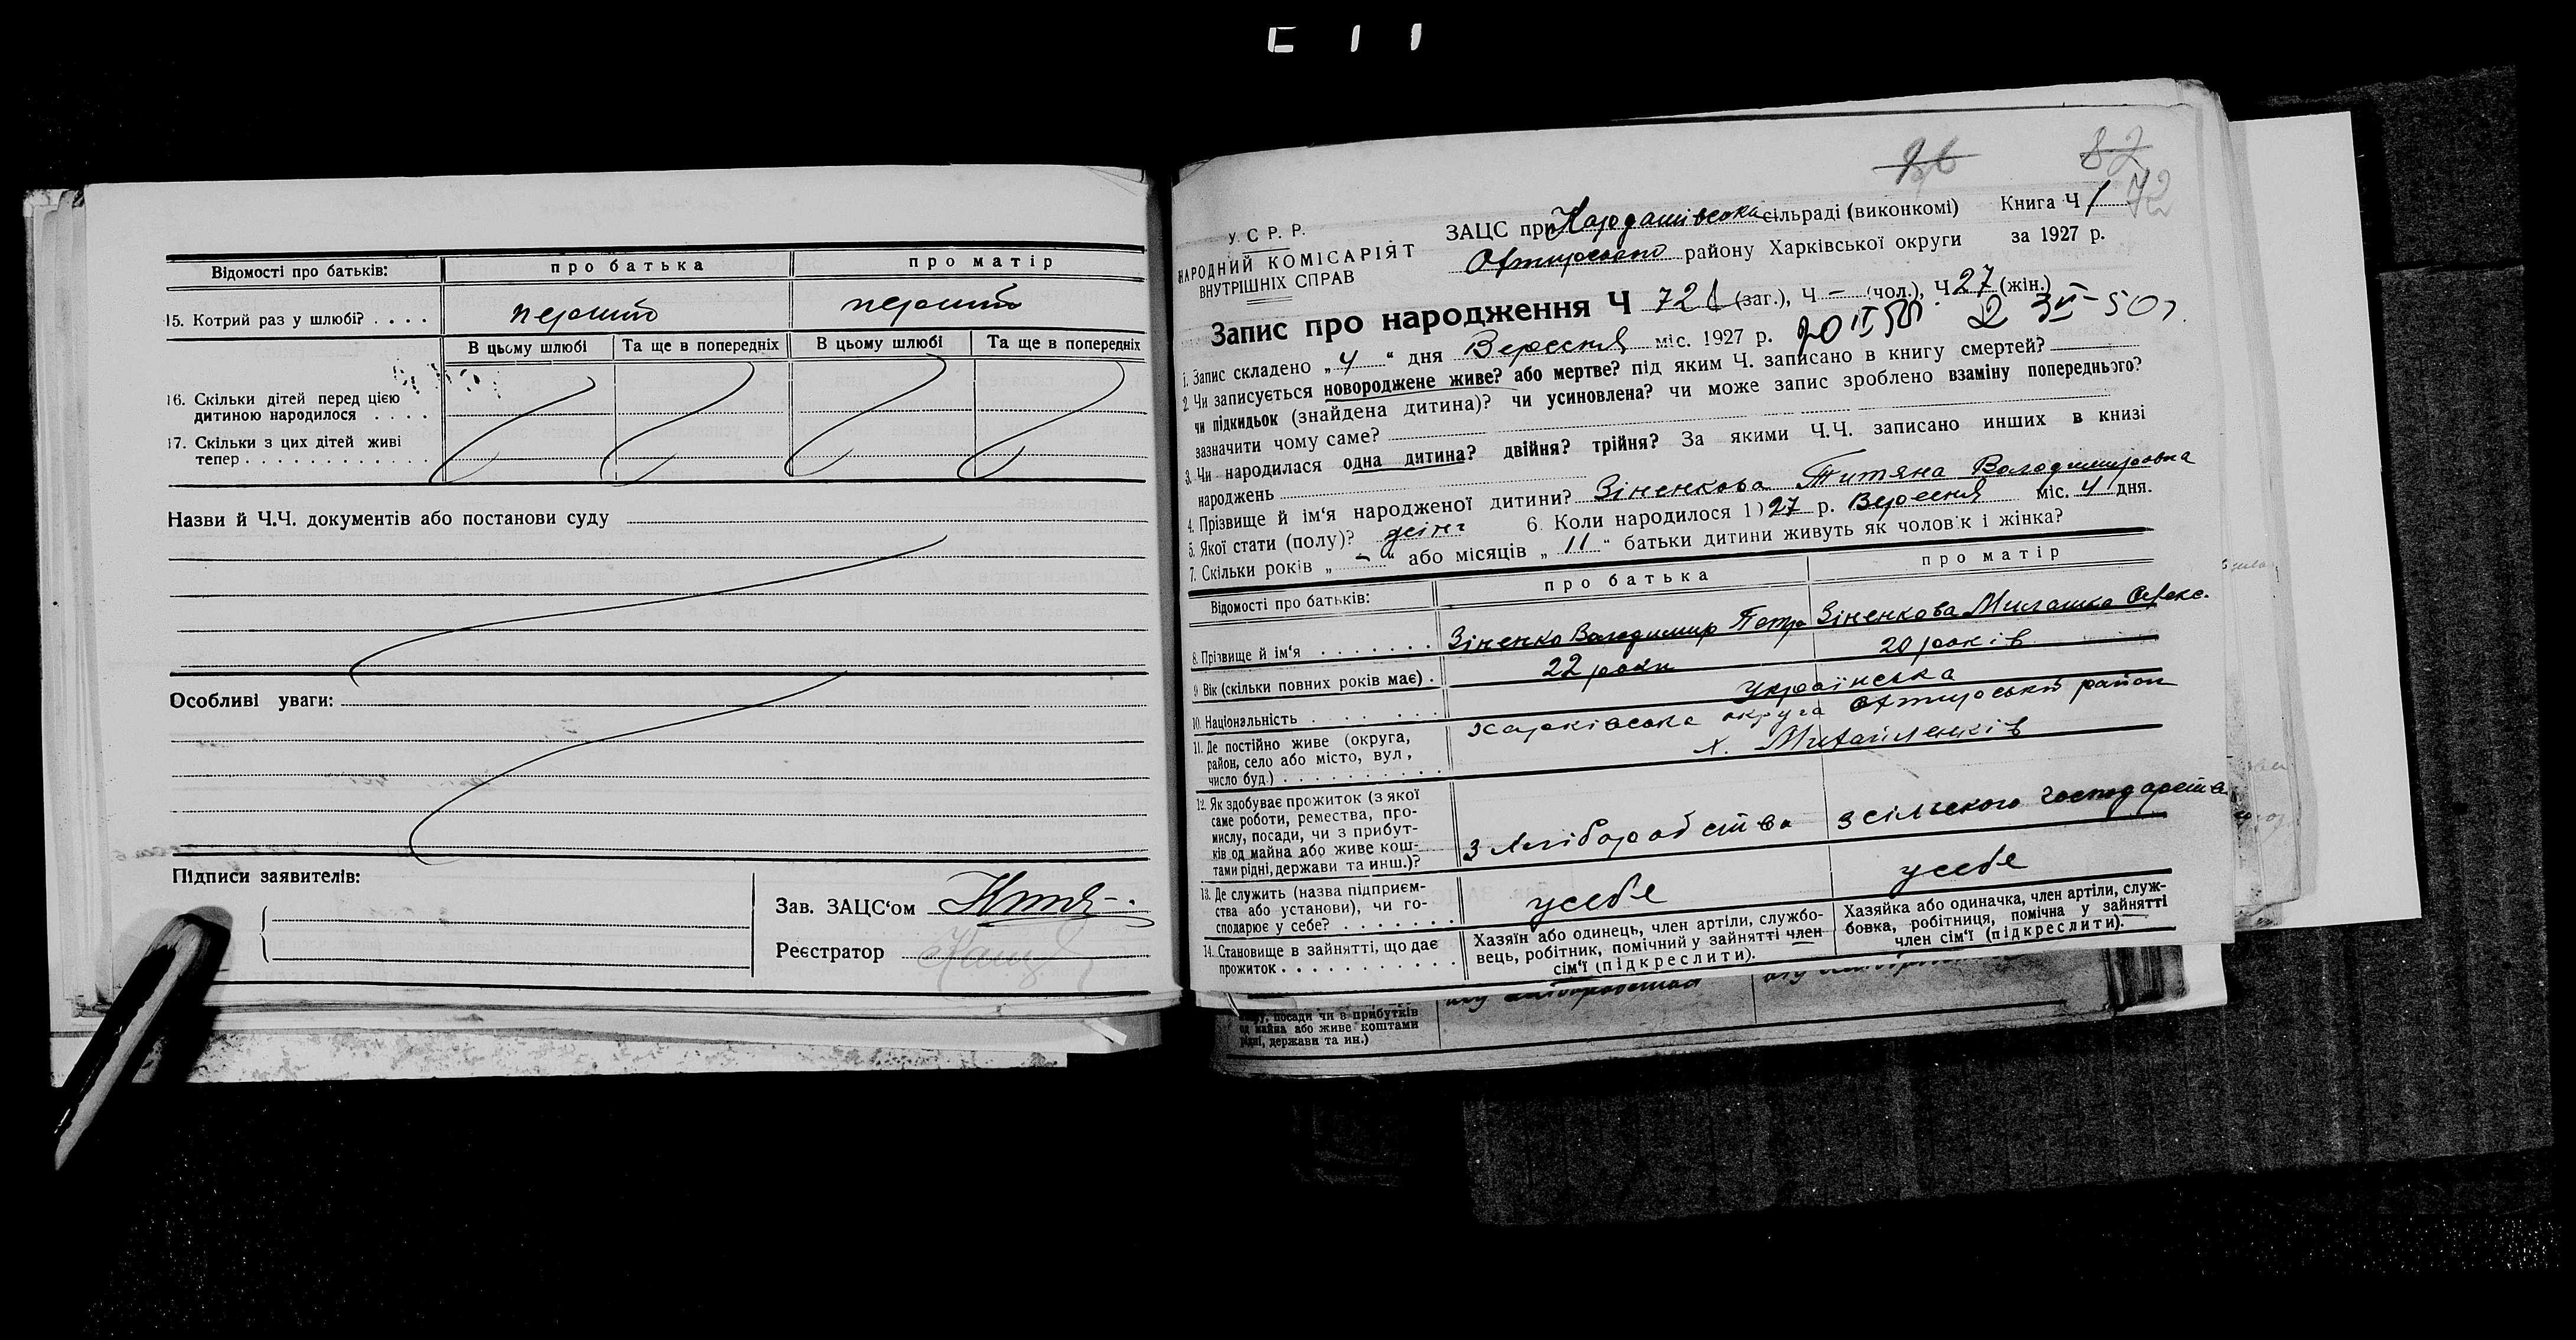 Відомості про батьків: про батька про матір
15. Котрий раз у шлюбі? . . . . першій першій
В цьому шлюбі Та ще в попередніх В цьому шлюбі Та ще в попередніх
16. Скільки дітей перед цією
дитиною народилося . . . .
17. Скільки з цих дітей живі
тепер . . . . . . . . . . . .
Назви й Ч.Ч. документів або постанови суду
Особливі уваги:
Підписи заявителів:
Зав. ЗАЦС‘ом
Реєстратор
82
72
У. С Р. Р.
НАРОДНИЙ КОМІСАРІЯТ
ВНУТРІШНІХ СПРАВ
ЗАЦС при Кардашівська сільраді (виконкомі) Книга Ч 1
Охтирського району Харківської округи за 1927 р.
Запис про народження Ч 72 (заг.), Ч – (чол.), Ч 27 (жін.)
1. Запис складено „ 4 “ дня Вересня міс. 1927 р.
2. Чи записується новороджене живе? або мертве? під яким Ч. записано в книгу смертей?
чи підкидьок (знайдена дитина)? чи усиновлена? чи може запис зроблено взаміну попереднього?
зазначити чому саме?
3. Чи народилася одна дитина? двійня? трійня? За якими Ч.Ч. записано инших в книзі
народжень
4. Прізвище й ім‘я народженої дитини? Зіненкова Титяна Володимировна
5. Якої стати (полу)? жіно 6. Коли народилося 1)27 р. Вересня міс. 4 дня.
7. Скільки років „ – “ або місяців „ 11 “ батьки дитини живуть як чоловік і жінка?
Відомості про батьків: про батька про матір
8. Прізвище й ім‘я . . . . . . . Зіненко Володимир Петро Зіненкова Милашка Олекс.
9 Вік (скільки повних років має) . 22 роки 20 років
10. Національність . . . . українська
11. Де постійно живе (округа, Харківська округа Охтирський район
район, село або місто, вул, х. Михайленків
число буд.) . . . . . . . . . .
12. Як здобуває прожиток (з якої
саме роботи, ремества, про-
мислу, посади, чи з прибут-
ків од майна або живе кош-
тами рідні, держави та инш.)? З хліборобства з сільского господарства
13. Де служить (назва підприєм-
ства або установи), чи го-
сподарює у себе? . . . . . . усебе усебе
14. Становище в зайнятті, що дає
прожиток . . . . . . . . . . .
Хазяїн або одинець, член артіли, службо-
вець, робітник, помічний у зайнятті член
сім‘ї (підкреслити).
Хазяйка або одиначка, член артіли, служ-
бовка, робітниця, помічна у зайнятті
член сім‘ї (підкреслити).
посади чи в прибутків
од майна або живе коштами
рідні, держави та ин.)